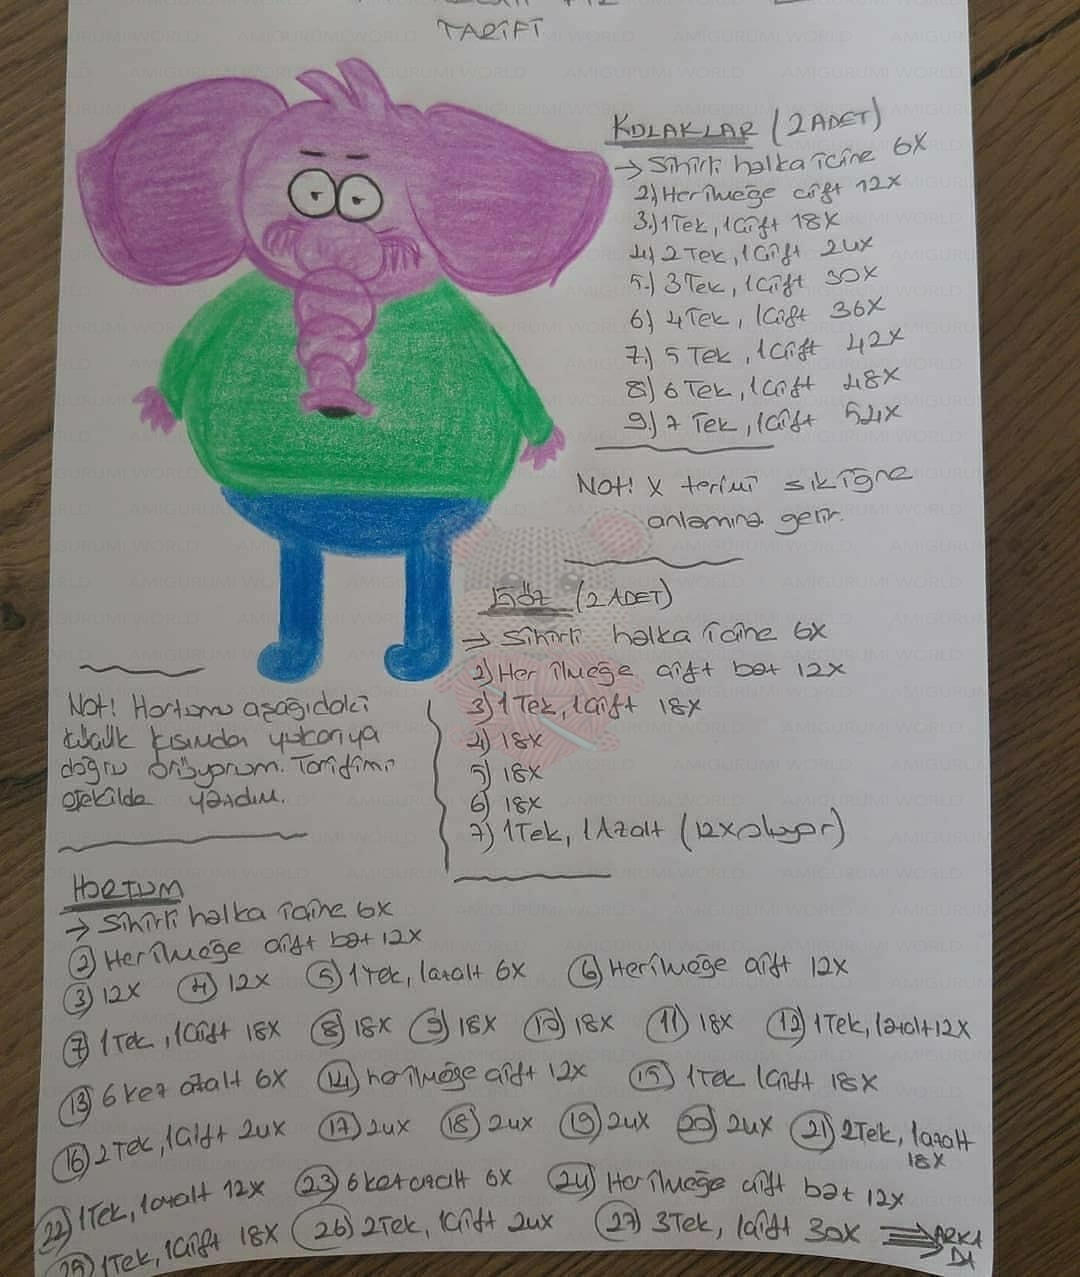 TARİFİ
KULAKLAR (2 ADET)
→ Sihirli halka içine 6X
2) Her ilmeğe çift 12X
3.) 1 Tek, 1 Çift 18X
4) 2 Tek, 1 Çift 24X
5.) 3 Tek, 1 Çift 30X
6) 4 Tek, 1 Çift 36X
7.) 5 Tek, 1 Çift 42X
8) 6 Tek, 1 Çift 48X
9.) 7 Tek, 1 Çift 54X
Not! X terimi sık iğne
anlamına gelir.
GÖZ (2 ADET)
→ Sihirli halka içine 6X
2) Her ilmeğe çift bat 12X
3) 1 Tek, 1 Çift 18X
4) 18X
5) 18X
6) 18X
7) 1 Tek, 1 Azalt (12X oluyor)
Not! Hortumu aşağıdaki
küçük kısımdan yukarıya
doğru örüyorum. Tarifimi
o şekilde yazdım.
HORTUM
→ Sihirli halka içine 6X
② Her ilmeğe çift bat 12X
③ 12X ④ 12X ⑤ 1 Tek, 1 azalt 6X ⑥ Her ilmeğe çift 12X
⑦ 1 Tek, 1 Çift 18X ⑧ 18X ⑨ 18X ⑩ 18X ⑪ 18X ⑫ 1 Tek, 1 azalt 12X
⑬ 6 kez azalt 6X ⑭ her ilmeğe çift 12X ⑮ 1 Tek 1 Çift 18X
⑯ 2 Tek, 1 Çift 24X ⑰ 24X ⑱ 24X ⑲ 24X ⑳ 24X ㉑ 2 Tek, 1 azalt
18X
㉒ 1 Tek, 1 azalt 12X ㉓ 6 kez azalt 6X ㉔ Her ilmeğe çift bat 12X
㉕ 1 Tek, 1 Çift 18X ㉖ 2 Tek, 1 Çift 24X ㉗ 3 Tek, 1 Çift 30X ⇒ ARKA
DA
AMIGURUMI WORLD